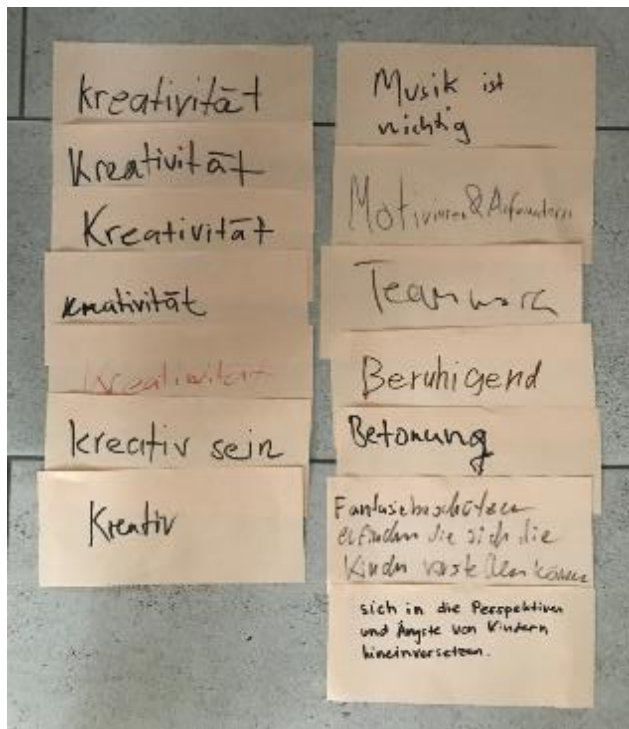 Kreativität
Kreativität
Kreativität
Kreativität
Kreativität
kreativ sein
Kreativ
Musik ist
wichtig
Motivieren & Aufmuntern
Teamwork
Beruhigend
Betonung
Fantasiebeschützer
erfinden die sich die
Kinder vorstellen können
sich in die Perspektiven
und Ängste von Kindern
hineinversetzen.